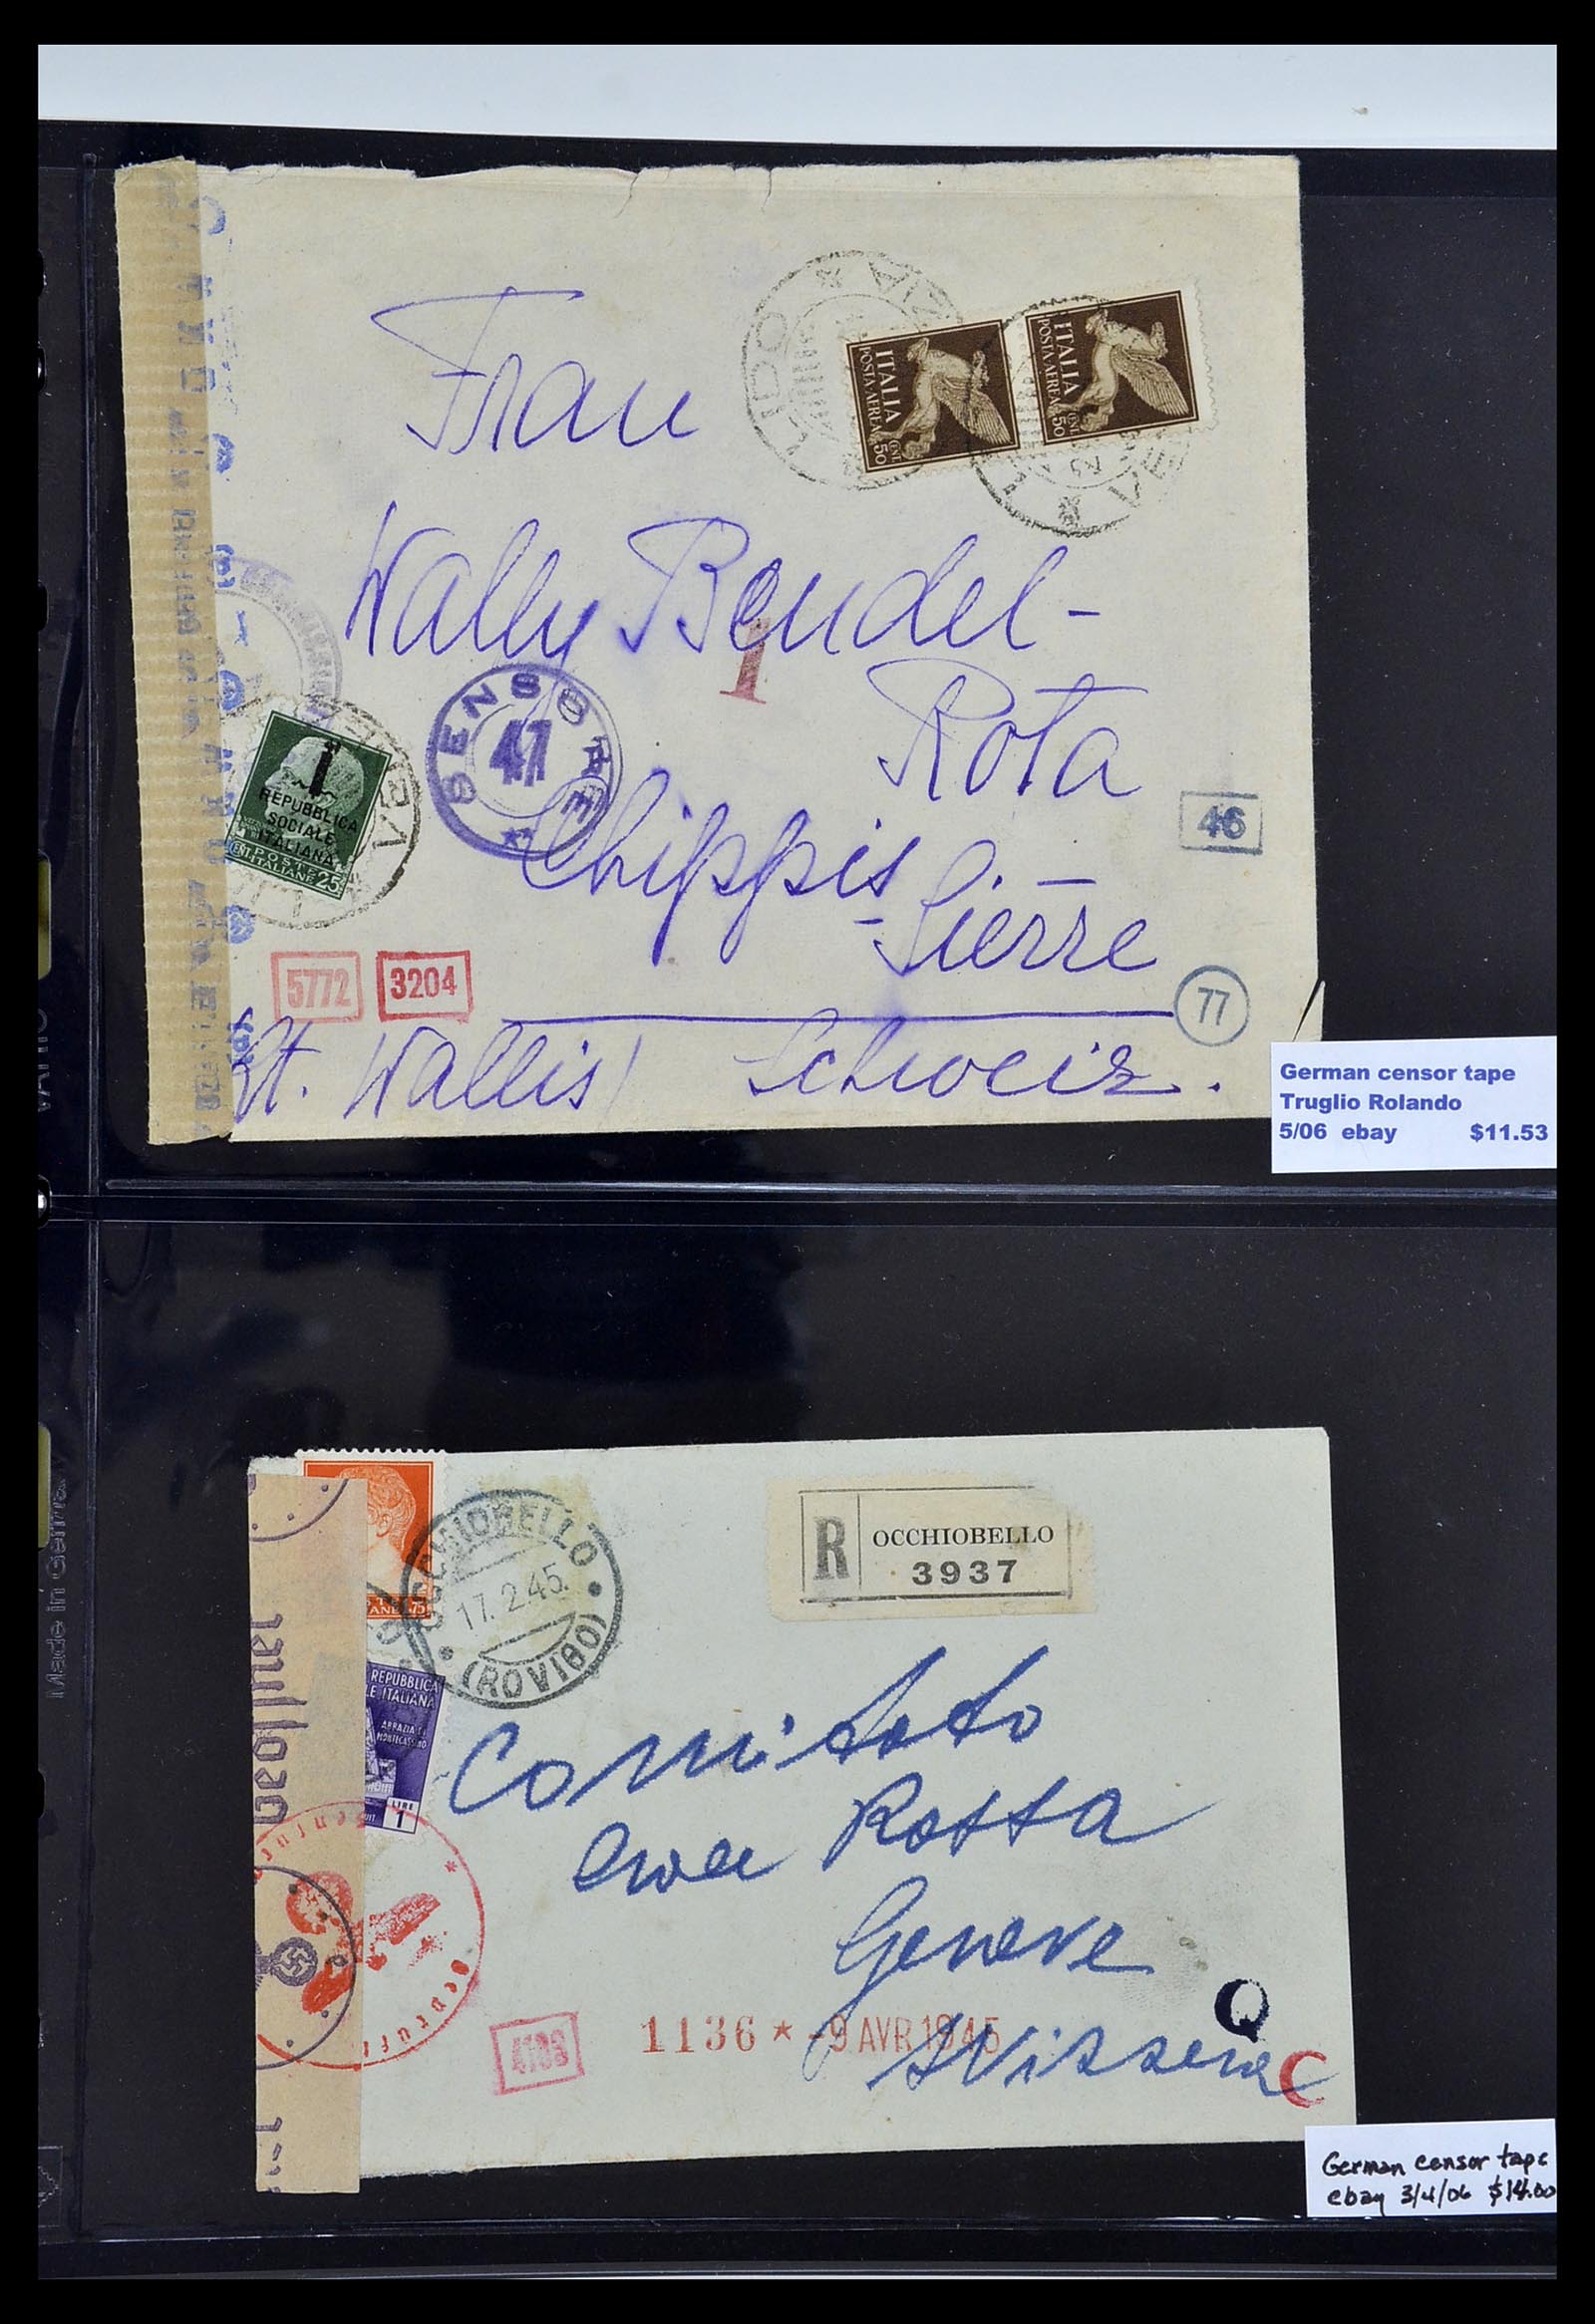 Frau
Wally Bendel-
Rota
Chippis -
-Sierre
Kt. Wallis) Schweiz.
LIDO
VE
ITALIA
POSTA AEREA
CENT 50
ITALIA
POSTA AEREA
CENT 50
1
CENSORE
47
REPUBBLICA
SOCIALE
ITALIANA
POSTE
ITALIANE
CENT. 25
46
5772
3204
77
German censor tape
Truglio Rolando
5/06 ebay $11.53
Made in Germany
R
OCCHIOBELLO
3937
OCCHIOBELLO
17.2.45.
(ROVIGO)
REPUBBLICA
LE ITALIANA
MONTECASSINO
LIRE
1
Comitato
Croce Rossa
Geneve
Svizzera
Q
C
1136 * -9 AVR 1945
Geöffnet
German censor tape
ebay 3/4/06 $14.00